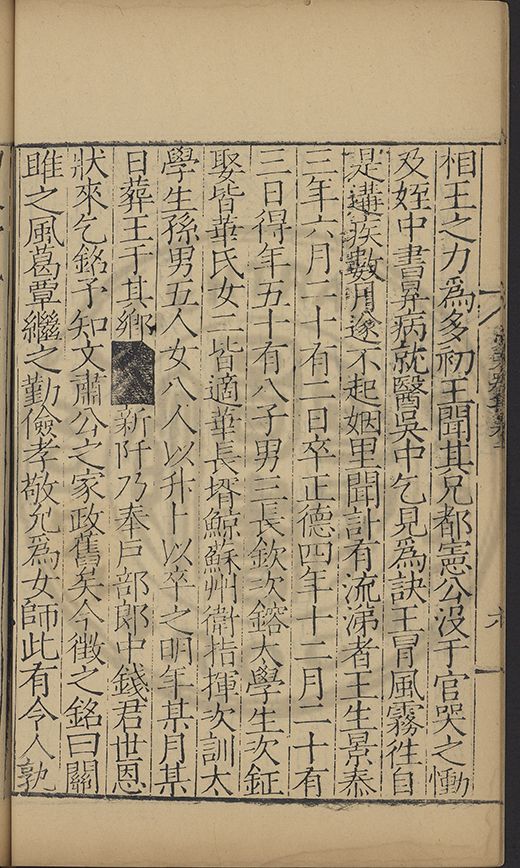 相王之力為多初王聞其兄都憲公沒于官哭之慟
及姪中書昇病就醫吳中乞見為訣王冒風霧徃自
是遘疾數月遂不起姻里聞訃有流涕者王生景泰
三年六月二十有二日卒正德四年十二月二十有
三日得年五十有八子男三長欽次鎔太學生次鉦
娶皆華氏女二皆適華長壻鯨蘇州衛指揮次訓太
學生孫男五人女八人以卒之明年某月某
日葬王于其鄉新阡乃奉戶部郎中錢君世恩
狀來乞銘予知文肅公之家政舊矣今徵之銘曰關
雎之風葛覃繼之勤儉孝敬允為女師此有令人孰